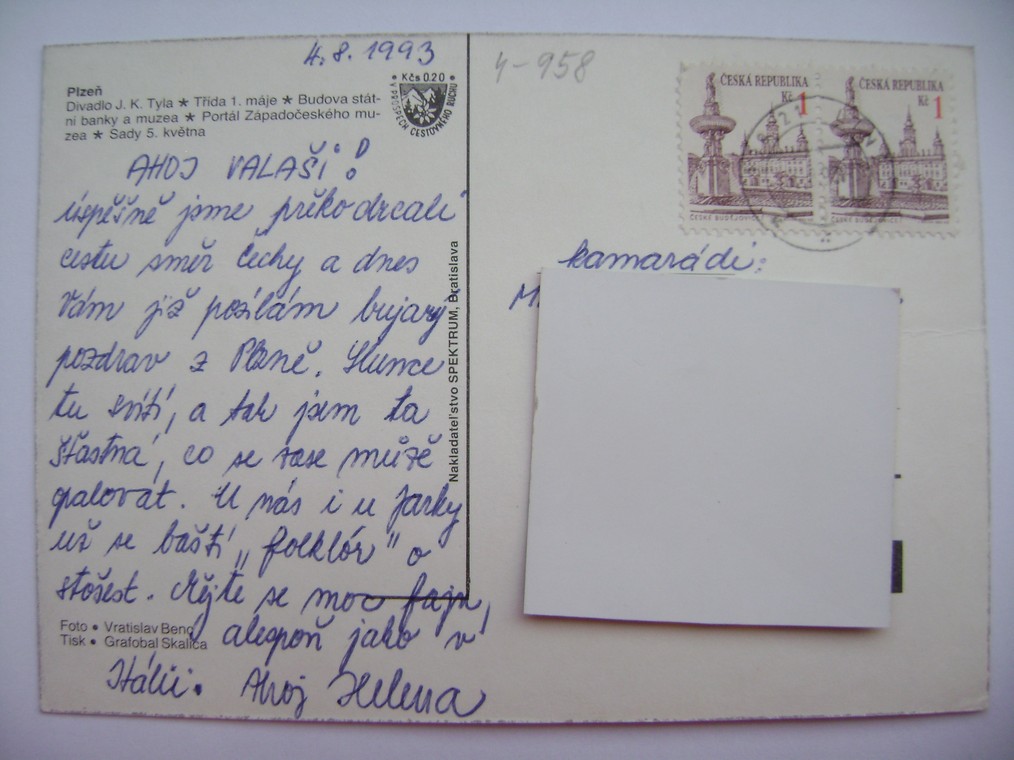 4.8.1993
4-958
Plzeň
Divadlo J. K. Tyla ★ Třída 1. máje ★ Budova stát-
ní banky a muzea ★ Portál Západočeského mu-
zea ★ Sady 5. května
• Kčs 0.20 •
V PROSPĚCH CESTOVNÉHO RUCHU
ČESKÁ REPUBLIKA
Kč 1
ČESKÉ BUDĚJOVICE
ČESKÁ REPUBLIKA
Kč 1
ČESKÉ BUDĚJOVICE
AHOJ VALAŠI!
úspěšně jsme překodrcali
cestu směr Čechy a dnes
Vám již posílám bujarý
pozdrav z Plzně. Slunce
tu svítí, a tak jsem ta
šťastná, co se zase může
opalovat. U nás i u Jarky
už se baští „folklór" o
stošest. Mějte se moc fajn,
alespoň jako v
Itálii. Ahoj Helena
kamarádi:
M
Nakladateľstvo SPEKTRUM, Bratislava
Foto • Vratislav Beno
Tisk • Grafobal Skalica